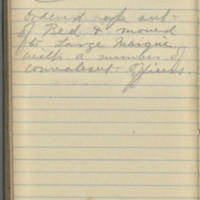 Ordered up & out
of Bed & moved
to Large Marque
with a number of
convalescent Officers.